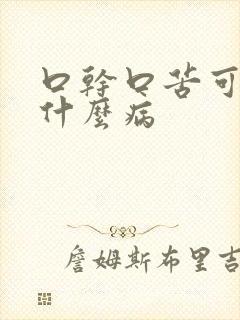 口幹口苦可
什麼病
詹姆斯布里吉